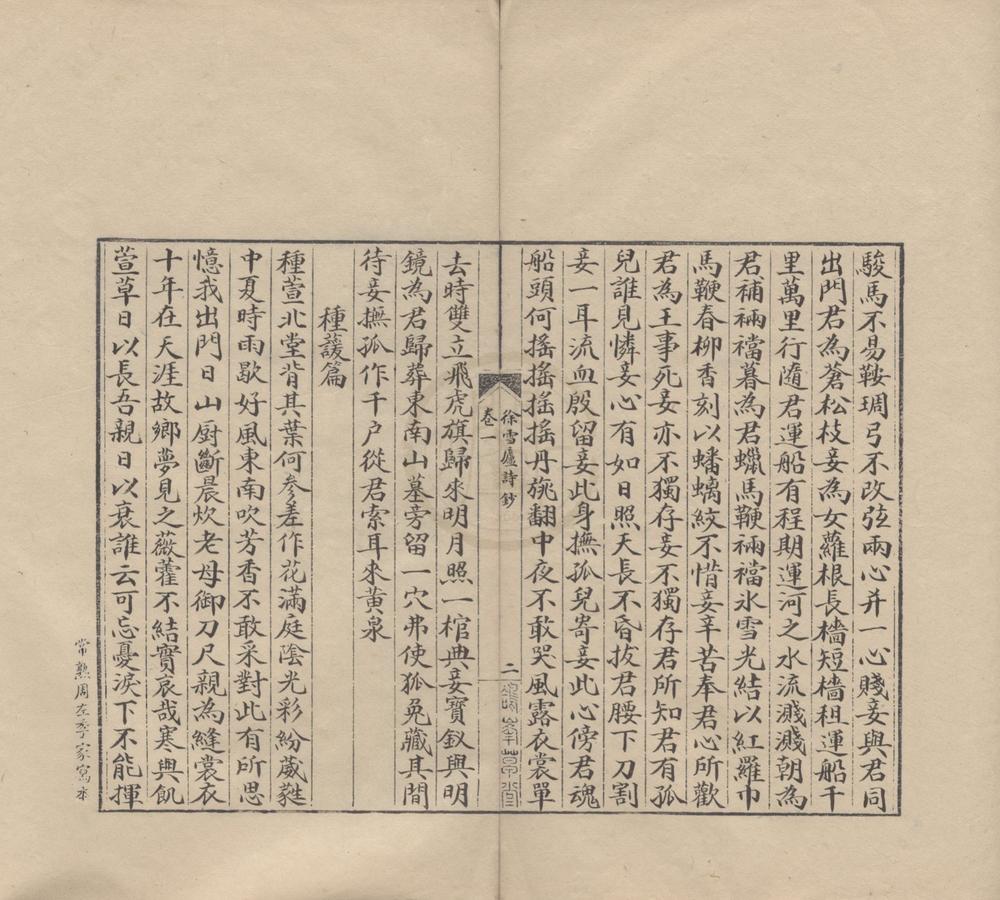 駿馬不易鞍琱弓不改弦兩心并一心賤妾與君同
出門君為蒼松枝妾為女蘿根長檣短檣租運船千
里萬里行隨君運船有程期運河之水流濺濺朝為
君補裲襠暮為君蠟馬鞭裲襠冰雪光結以紅羅巾
馬鞭春柳香刻以蟠螭紋不惜妾辛苦奉君心所歡
君為王事死妾亦不獨存妾不獨存君所知君有孤
兒誰見憐妾心有如日照天長不昏拔君腰下刀割
妾一耳流血殷留妾此身撫孤兒寄妾此心傍君魂
船頭何搖搖搖搖丹旐翻中夜不敢哭風露衣裳單
徐雪廬詩鈔
卷一
二
去時雙立飛虎旗歸來明月照一棺典妾寶釵與明
鏡為君歸葬東南山墓旁留一穴弗使狐兔藏其間
待妾撫孤作千戶從君索耳來黃泉
種蘐篇
種萱北堂背其葉何參差作花滿庭陰光彩紛葳蕤
中夏時雨歇好風東南吹芳香不敢采對此有所思
憶我出門日山厨斷晨炊老母御刀尺親為縫裳衣
十年在天涯故鄉夢見之薇藿不結實哀哉寒與飢
萱草日以長吾親日以衰誰云可忘憂淚下不能揮
常熟周左季家寫本